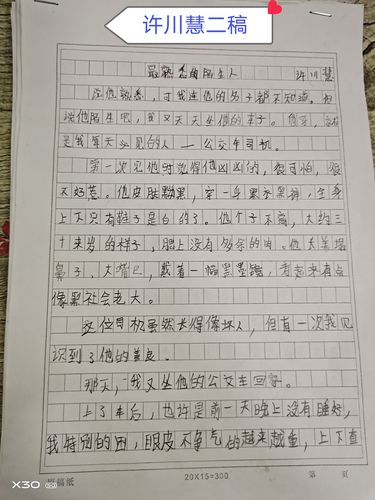 许川慧二稿
最熟悉的陌生人 许川慧
说他熟悉,可我连他的名字都不知道。但
说他陌生吧,我又天天坐他的车子。他呀,就
是我每天必见的人——公交车司机。
第一次见他时觉得他凶凶的,很可怕,很
不好惹。他皮肤黝黑,穿一身黑衣黑裤,全身
上下只有鞋子是白的了。他个子不高,大约三
十来岁的样子,脸上没有多余的肉。他大鼻塔
鼻子、大嘴巴,戴着一幅黑墨镜,看起来有点
像黑社会老大。
这位司机虽然长得像坏人,但有一次我见
识到了他的善良。
那天,我又坐他的公交车回家。
上了车后,也许是前一天晚上没有睡好,
我特别的困,眼皮不争气的越来越重,上下直
20X15=300
稿纸 第 页
X30